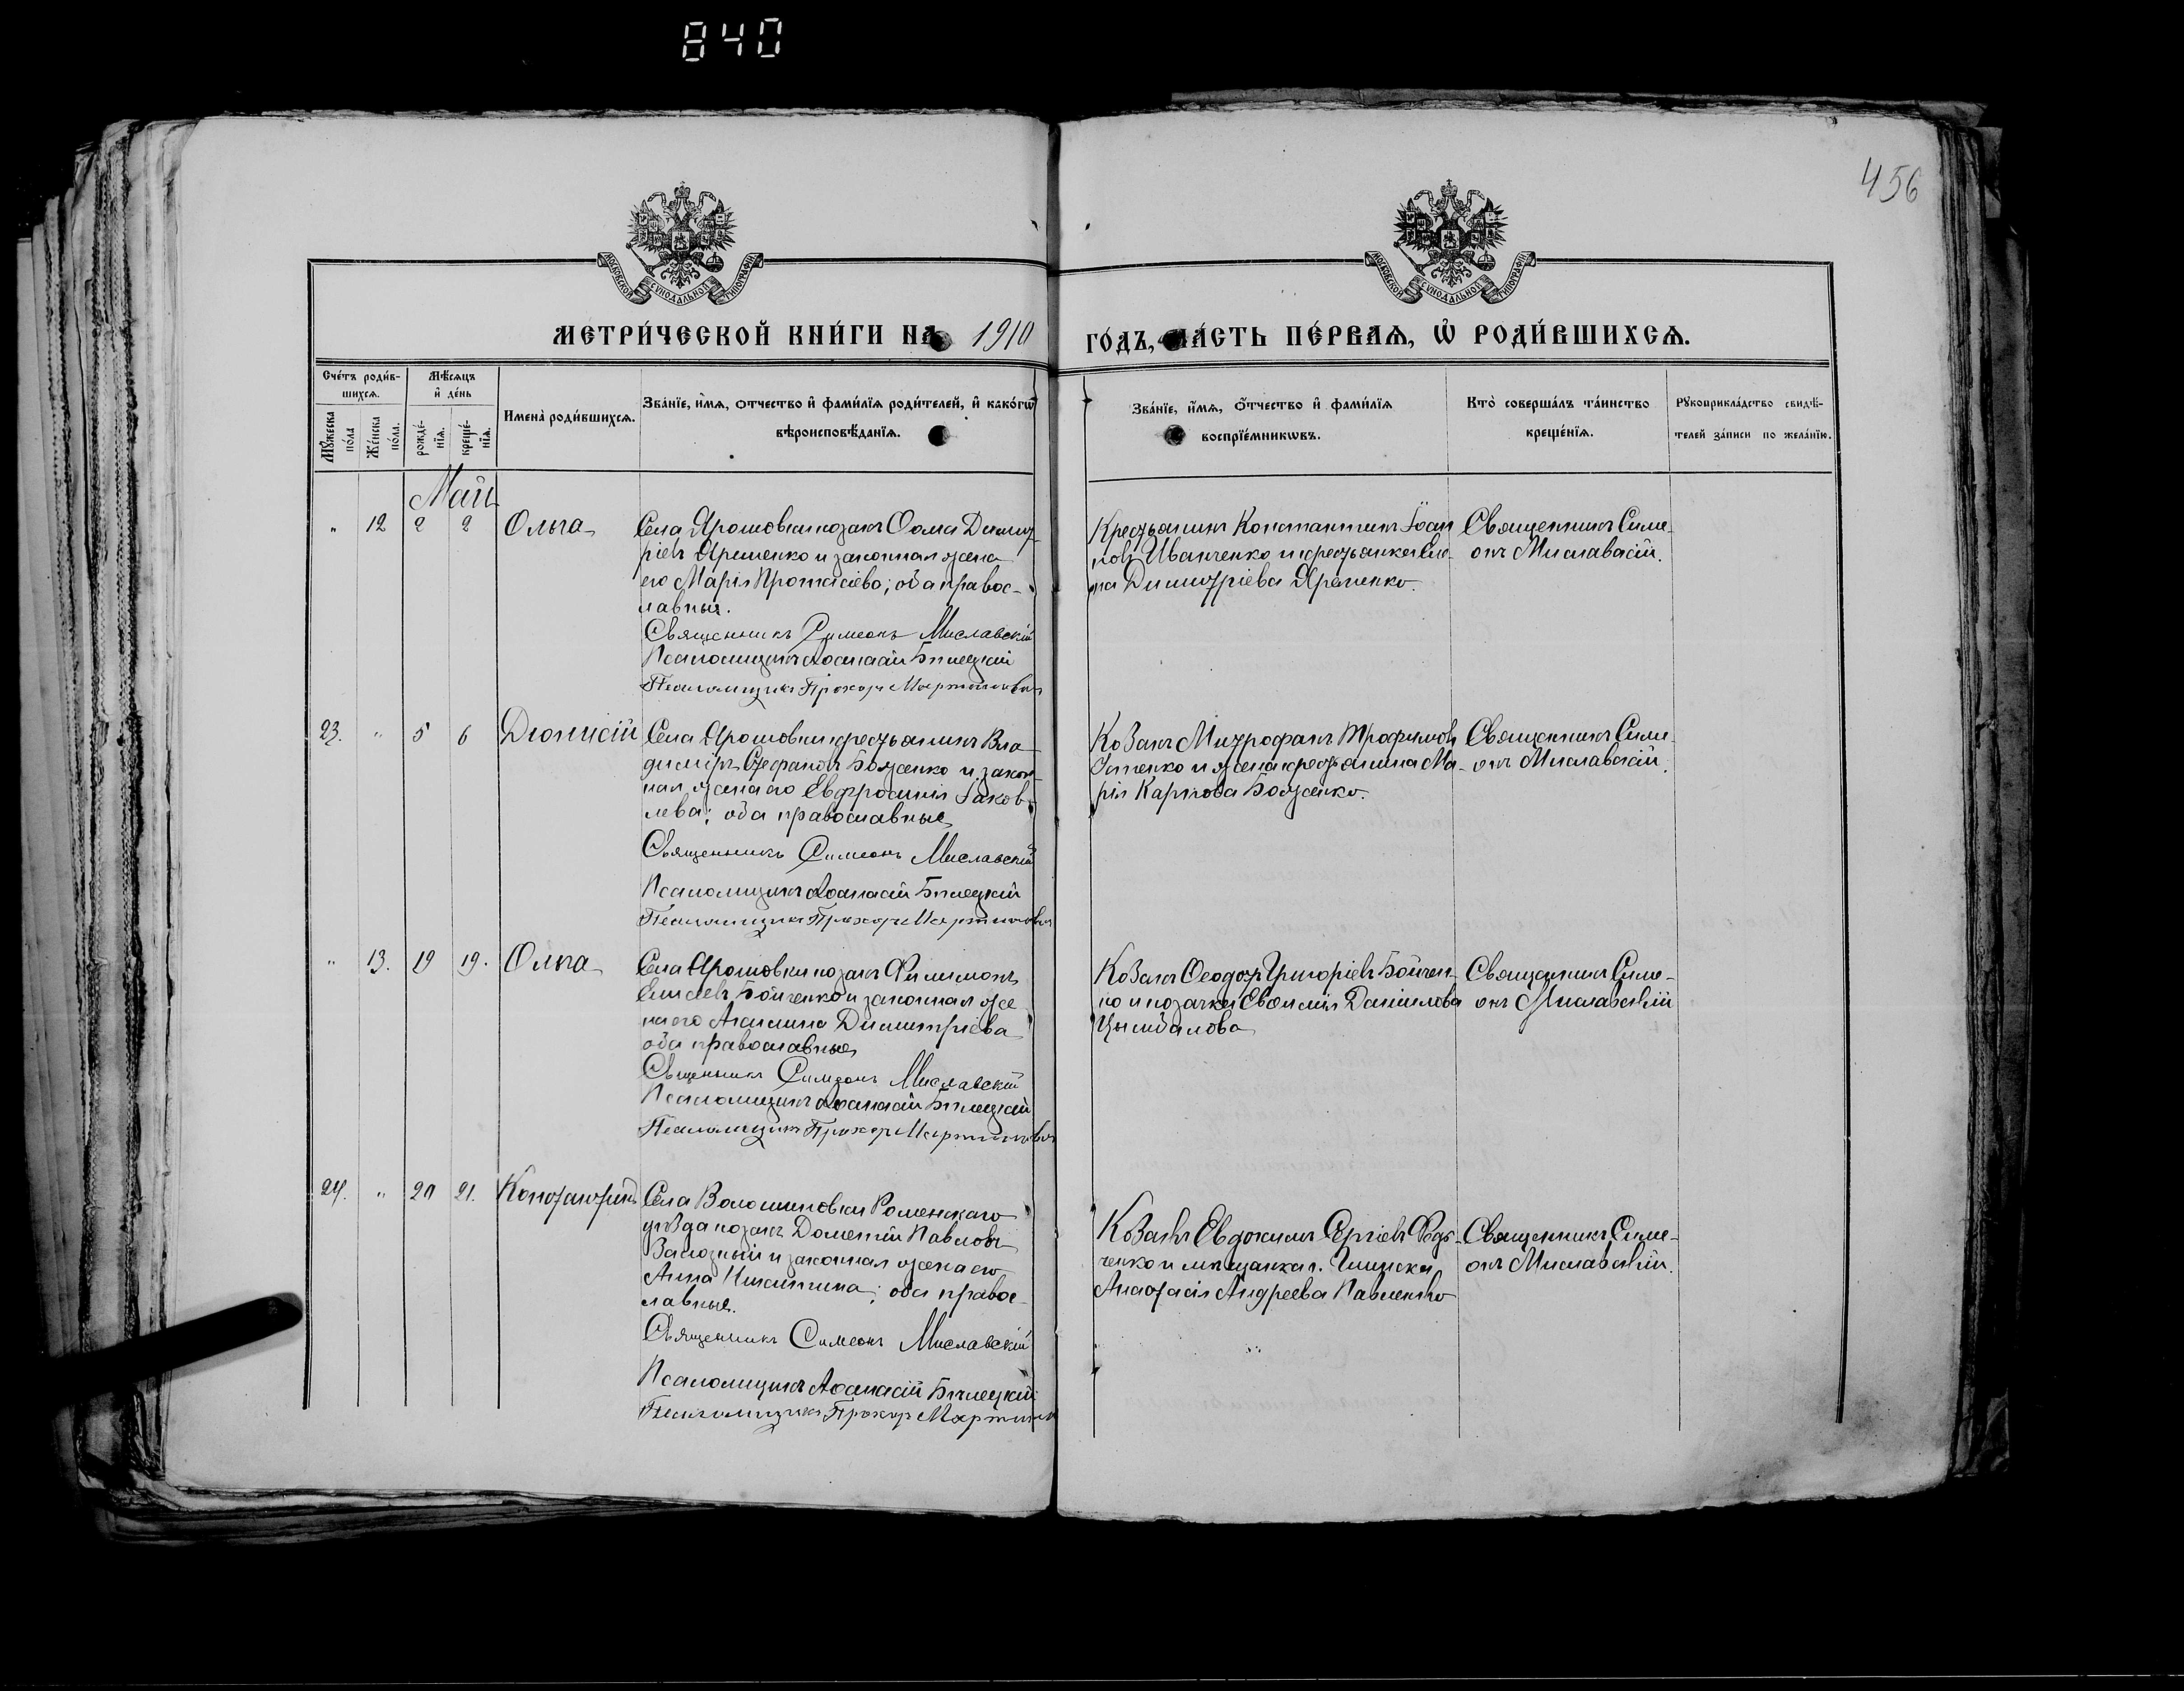 840
456
МОСКОВСКОЙ СѴНОДАЛЬНОЙ ТИПОГРАФІИ
МОСКОВСКОЙ СѴНОДАЛЬНОЙ ТИПОГРАФІИ
МЕТРИ́ЧЕСКОЙ КНИ́ГИ НА 1910 ГО́ДЪ, ЧА́СТЬ ПЕ́РВАѦ, Ѡ҆ РОДИ́ВШИХСѦ.
Сче́тъ роди́в-
шихсѧ.
Мꙋ́жеска по́ла
Же́нска по́ла.
Мѣ́сѧцъ и҆ де́нь
рожде́-
нїѧ.
креще́-
нїѧ.
Имена̀ роди́вшихсѧ.
Зва́нїе, и҆́мѧ, ѻтчество и҆ фами́лїѧ роди́телей, и҆ како́гѡ
вѣроисповѣ́данїѧ.
Зва́нїе, и҆́мѧ, ѻ҆́тчество и҆ фами́лїѧ
воспрїе́мникѡвъ.
Кто̀ соверша́лъ та́инство
креще́нїѧ.
Рꙋкоприкла́дство свидѣ́-
телей за́писи по жела́нїю.
Май
" 12 2 2 Ольга
Села Ярошовки козакъ Ѳома Димит-
ріевъ Яременко и законная жена
его Марія Протасіева; оба правос-
лавные.
Священникъ Симеонъ Миславскій
Псаломщикъ Аѳанасій Билецкій
Псаломщикъ Прохоръ Мартиновичъ
Крестьянинъ Константинъ Іоан
новъ Иванченко и крестьянка Еле-
на Димитріева Яременко.
Священникъ Симе-
онъ Миславскій.
23. " 5 6 Діонисій
Села Ярошовки крестьянинъ Вла-
димиръ Стефановъ Боженко и закон-
ная жена его Евфросинія Іаков-
лева; оба православные
Священникъ Симеонъ Миславскій
Псаломщикъ Аѳанасій Билецкій
Псаломщикъ Прохоръ Мартиновичъ
Козакъ Митрофанъ Трофимовъ
Устенко и жена крестьянина Ма-
рія Карпова Боженко.
Священникъ Симе-
онъ Миславскій.
" 13. 19 19. Ольга
Села Ярошовки козакъ Филимонъ
Елисеевъ Бойченко и законная же
на его Акилина Димитріева
оба православные
Священникъ Симеонъ Миславскій
Псаломщикъ Аѳанасій Билецкій
Псаломщикъ Прохоръ Мартиновичъ
Козакъ Ѳеодоръ Григоріевъ Бойчен-
ко и козачка Евѳимія Даніилова
Цымбалова
Священникъ Симе-
онъ Миславскій
24. " 20 21. Константинъ
Села Волошиновки Роменскаго
уѣзда козакъ Дометій Павловъ
Зализный и законная жена его
Анна Никитина; оба правос-
лавные.
Священникъ Симеонъ Миславскій
Псаломщикъ Аѳанасій Билецкій
Псаломщикъ Прохоръ Мартинов
Козакъ Евдокимъ Сергіевъ
ченко и мѣщанка г. Глинска
Анастасія Андреева Павленко
Священникъ Симе-
онъ Миславскій.